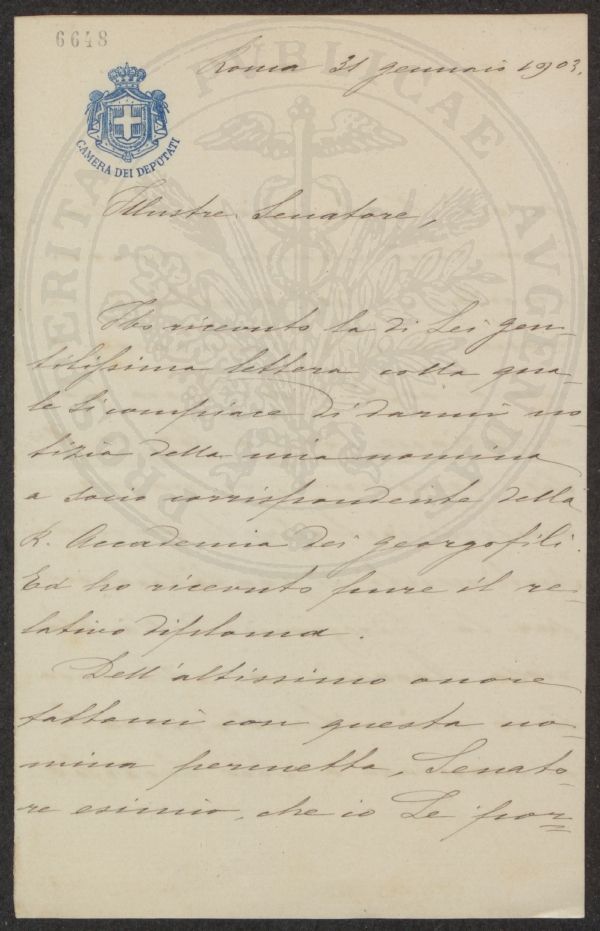 6648
Roma 31 gennaio 1903.
CAMERA DEI DEPUTATI
PROSPERITATI PUBLICAE AVGENDAE
Illustre Senatore,
Ho ricevuto la di Lei gen-
tilissima lettera colla qua-
le Si compiace di darmi no-
tizia della mia nomina
a socio corrispondente della
R. Accademia dei georgofili.
Ed ho ricevuto pure il re-
lativo diploma.
Dell'altissimo onore
fattami con questa no-
mina permetta, Senato-
re esimio, che io Le por-